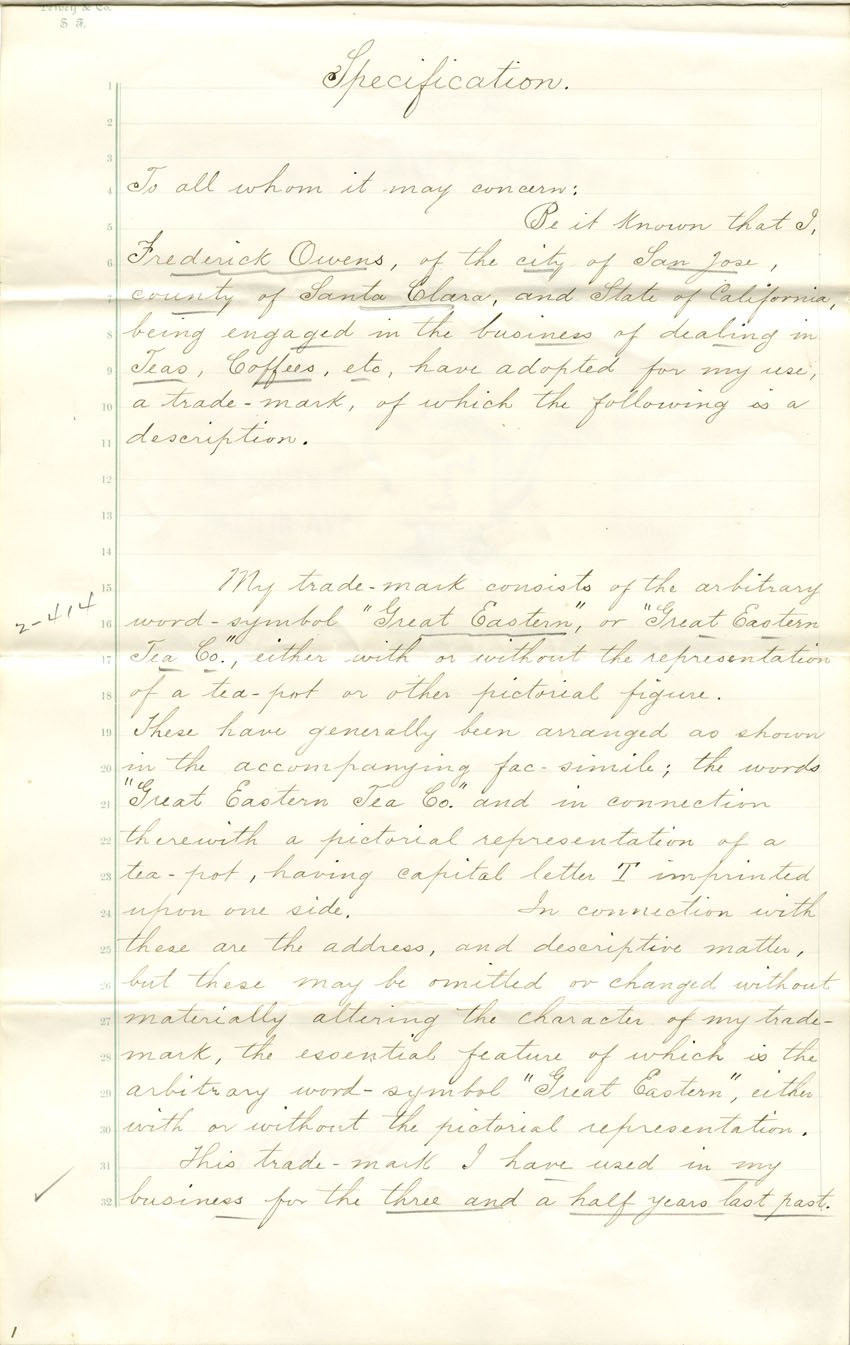 & Co.
S F.
Specification.
1
2
3
4 To all whom it may concern:
5 Be it known that I,
6 Frederick Owens, of the city of San Jose,
7 county of Santa Clara, and State of California,
8 being engaged in the business of dealing in
9 Teas, Coffees, etc, have adopted for my use,
10 a trade-mark, of which the following is a
11 description.
12
13
14
15 My trade-mark consists of the arbitrary
2-414
16 word-symbol "Great Eastern", or "Great Eastern
17 Tea Co.", either with or without the representation
18 of a tea-pot or other pictorial figure.
19 These have generally been arranged as shown
20 in the accompanying fac-simile; the words
21 "Great Eastern Tea Co." and in connection
22 therewith a pictorial representation of a
23 tea-pot, having capital letter T imprinted
24 upon one side. In connection with
25 these are the address, and descriptive matter,
26 but these may be omitted or changed without
27 materially altering the character of my trade-
28 mark, the essential feature of which is the
29 arbitrary word-symbol "Great Eastern", either
30 with or without the pictorial representation.
31 This trade-mark I have used in my
32 business for the three and a half years last past.
1